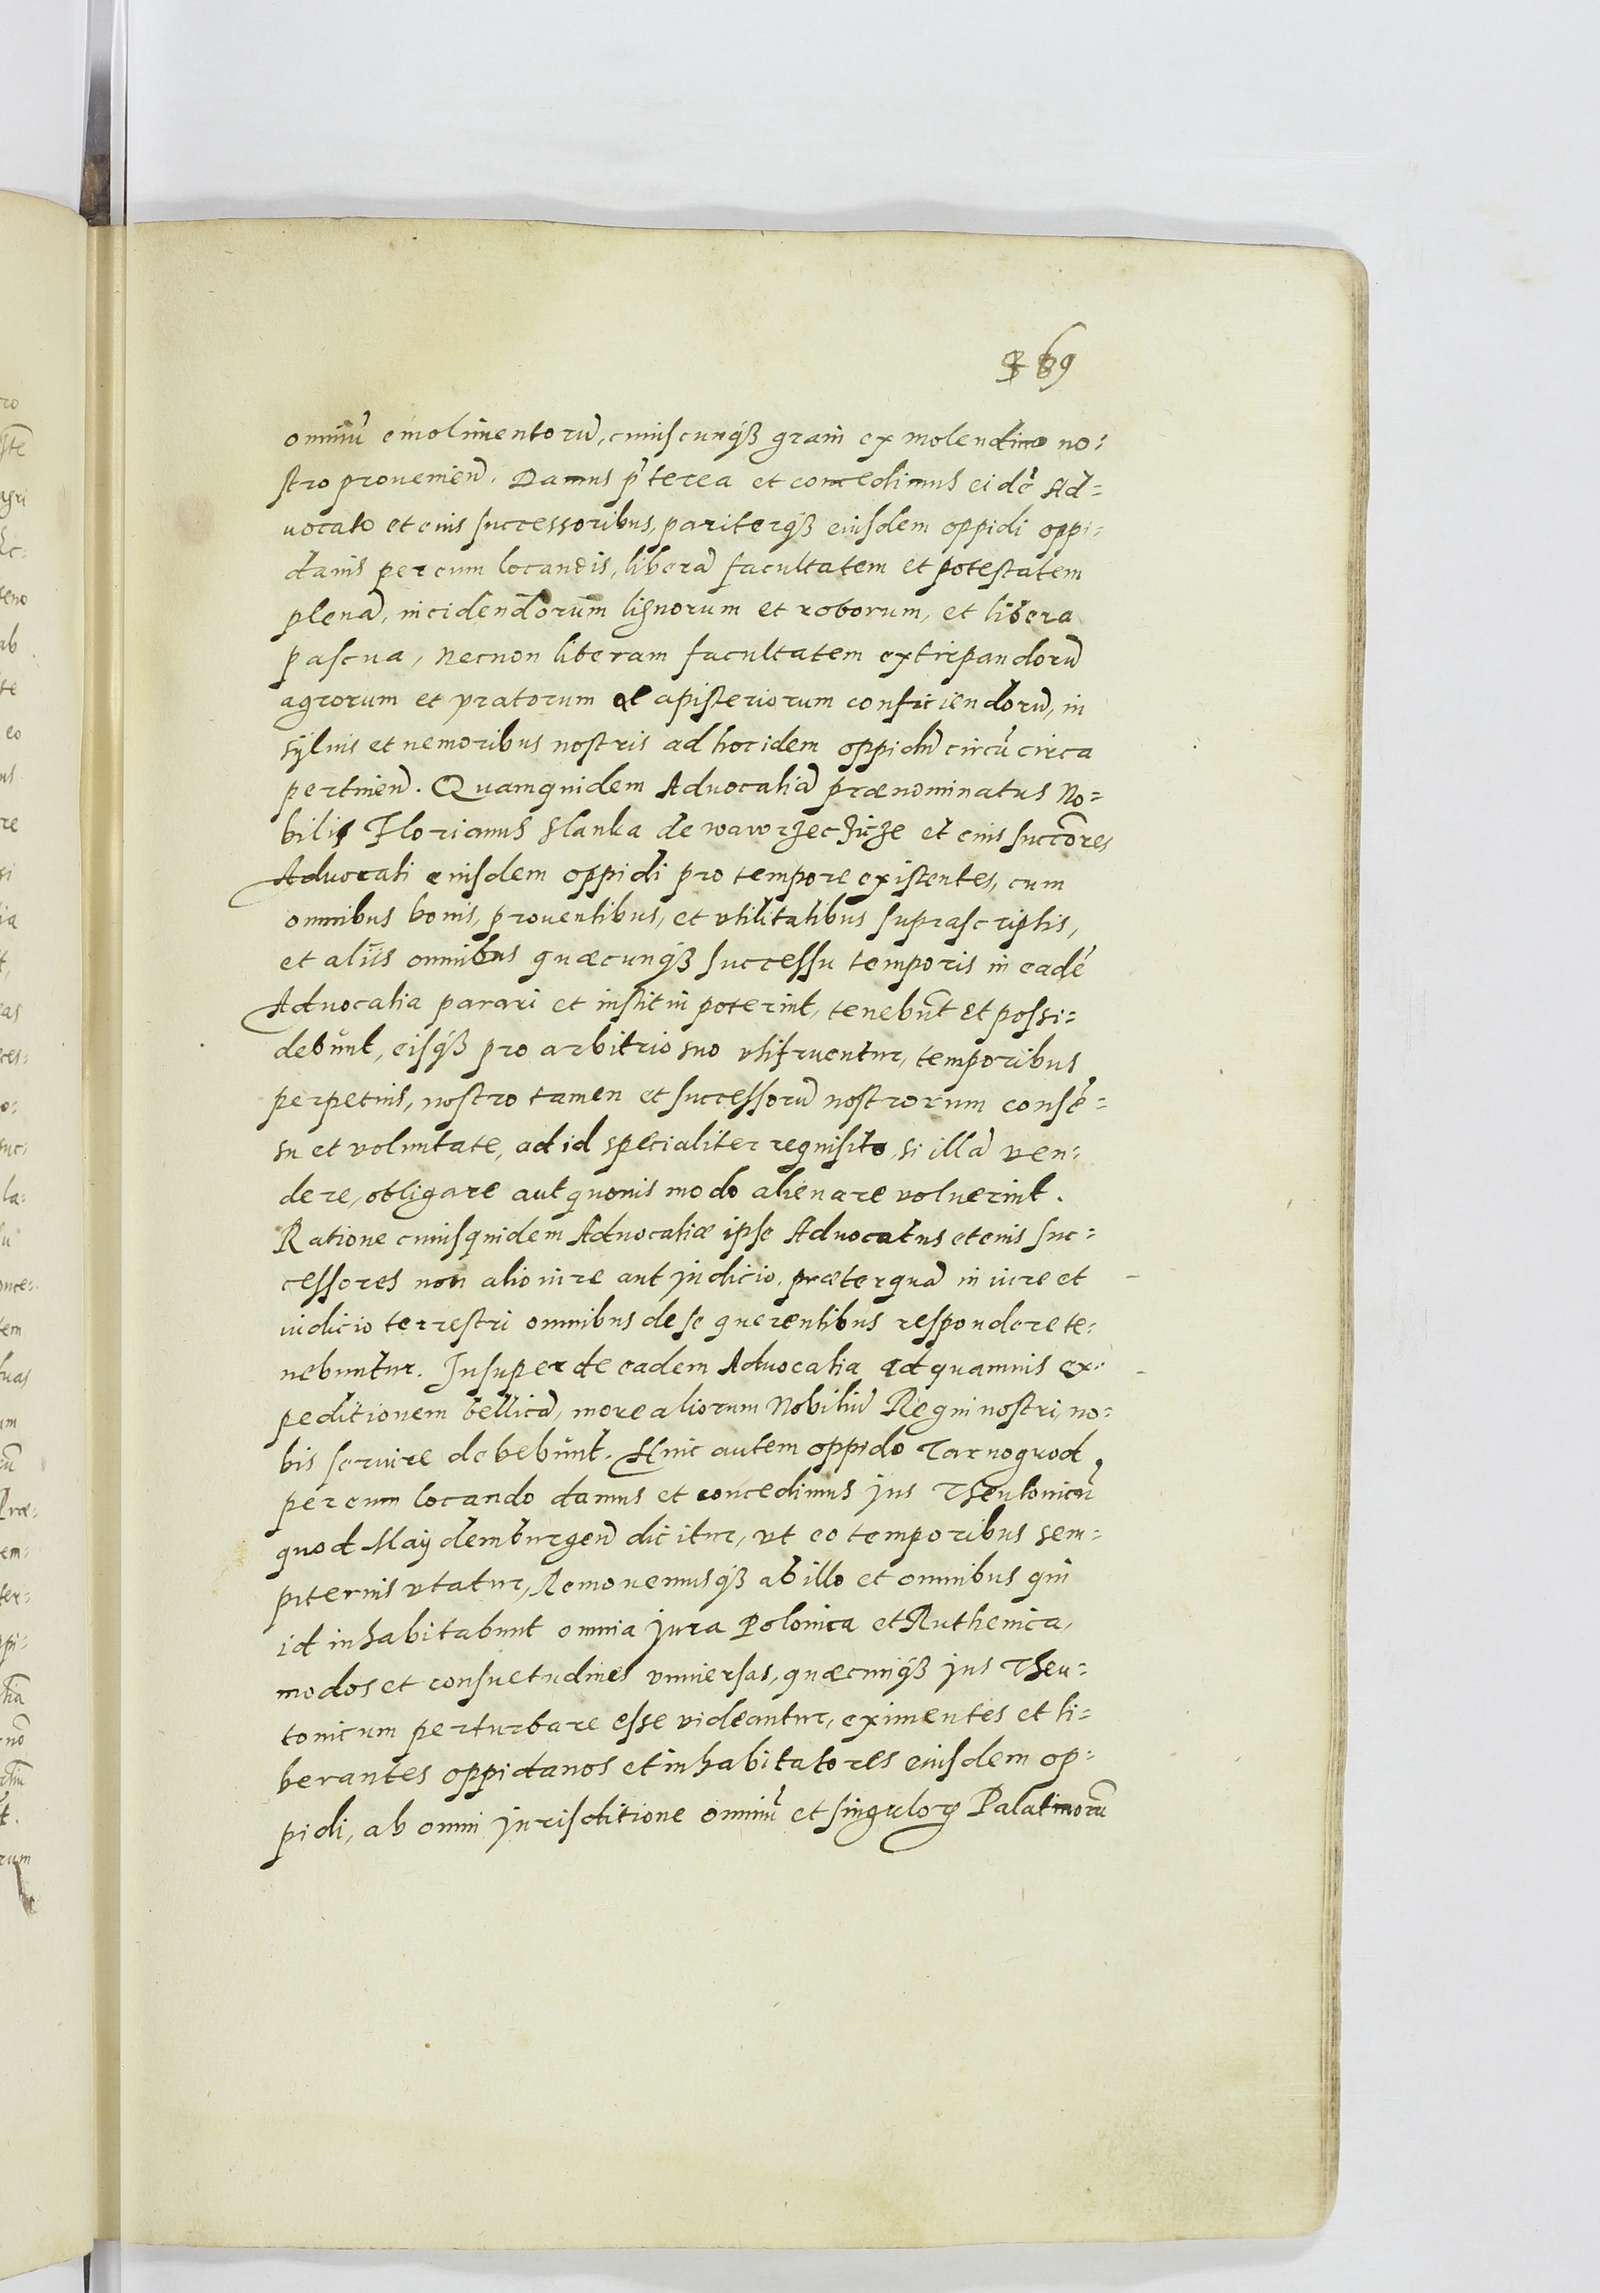 69
omniũ emolimentorũ, cuiuscunqȝ grani ex molendino no=
stro prouenienд. Damus p̃terea et concedimus eidẽ Ad=
uocato et eius successoribus, pariterqȝ eiusdem oppidi oppi=
danis per eum locandis, liberã facultatem et potestatem
plenã, incidendorum lignorum et roborum, et libera
pascua, necnon liberam facultatem extirpandorũ
agrorum et pratorum et apisteriorum conficiendorũ, in
sÿluis et nemoribus nostris ad hoc idem oppidũ circũ circa
pertinenд. Quamquidem Aduocatiã prænominatus No=
bilis Florianus Slanka de waworzeczicze et eius succ̃ores
Aduocati eiusdem oppidi pro tempore existentes, cum
omnibus bonis, prouentibus, et vtilitatibus suprascriptis,
et aliis omnibus quæcunqȝ successu temporis in eadẽ
Aduocatia parari et institui poterint, tenebũt et possi=
debunt, eisqȝ pro arbitrio suo vtifruentur, temporibus
perpetuis, nostro tamen et successorũ nostrorum consẽ=
su et voluntate, ad id specialiter requisito, si illã ven=
dere, obligare aut quouis modo alienare voluerint.
Ratione cuiusquidem Aduocatiæ ipse Aduocatus et eius suc=
cessores non alio iure aut judicio, præterquã in iure et
iudicio terrestri omnibus de se querentibus respondere te=
nebuntur. Insuper de eadem Aduocatia ad quamuis ex=
peditionem bellicã, more aliorum Nobiliũ Regni nostri, no=
bis seruire debebunt. Huic autem oppido Tarnogrod
per eum locando damus et concedimus jus Theutonicũ
quod Maÿdemburgenд dicitur, vt eo temporibus sem=
piternis vtatur, Remouemusqȝ ab illo et omnibus qui
id inhabitabunt omnia jura Polonica et Ruthenica,
modos et consuetudines vniuersas, quæcunqȝ jus Theu=
tonicum perturbare esse videantur, eximentes et li=
berantes oppidanos et inhabitatores eiusdem op=
pidi, ab omni jurisditione omniũ et singuloꝝ Palatinorũ